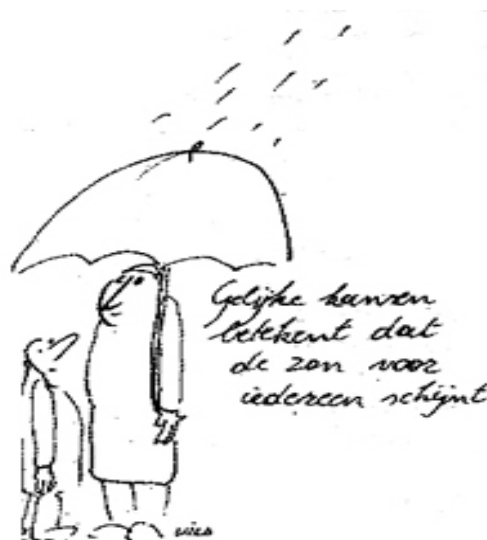 Gelijke kansen
betekent dat
de zon voor
iedereen schijnt